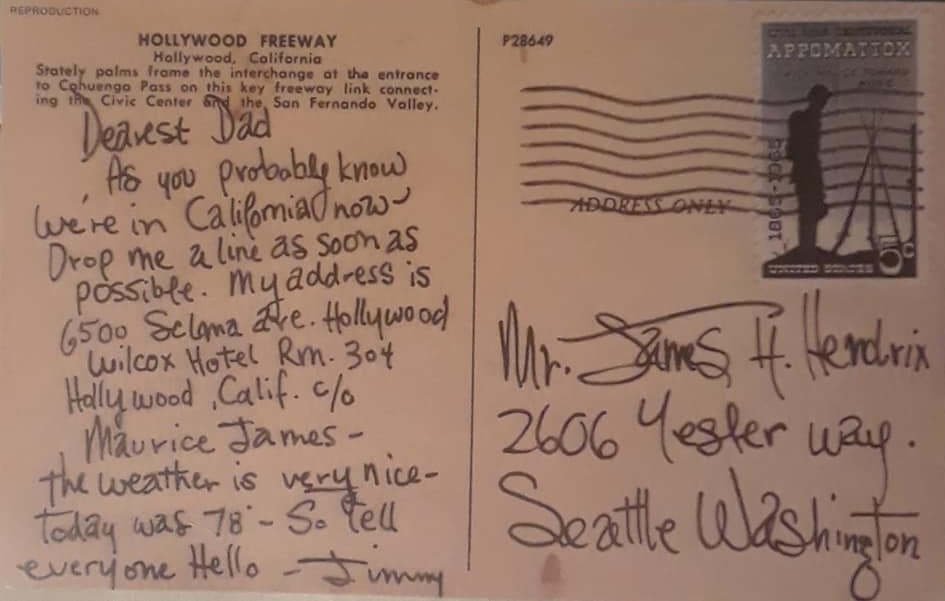 REPRODUCTION
HOLLYWOOD FREEWAY
Hollywood, California
Stately palms frame the interchange at the entrance
to Cahuenga Pass on this key freeway link connect-
ing the Civic Center and the San Fernando Valley.
Dearest Dad
As you probably know
we're in California now-
Drop me a line as soon as
possible. My address is
6500 Selma Ave. Hollywood
Wilcox Hotel Rm. 304
Hollywood, Calif. c/o
Maurice James -
the weather is very nice-
today was 78° - So tell
everyone Hello - Jimmy
P28649
APPOMATTOX
1865-1965
5c
UNITED STATES
ADDRESS ONLY
Mr. James H. Hendrix
2606 Yesler way.
Seattle Washington